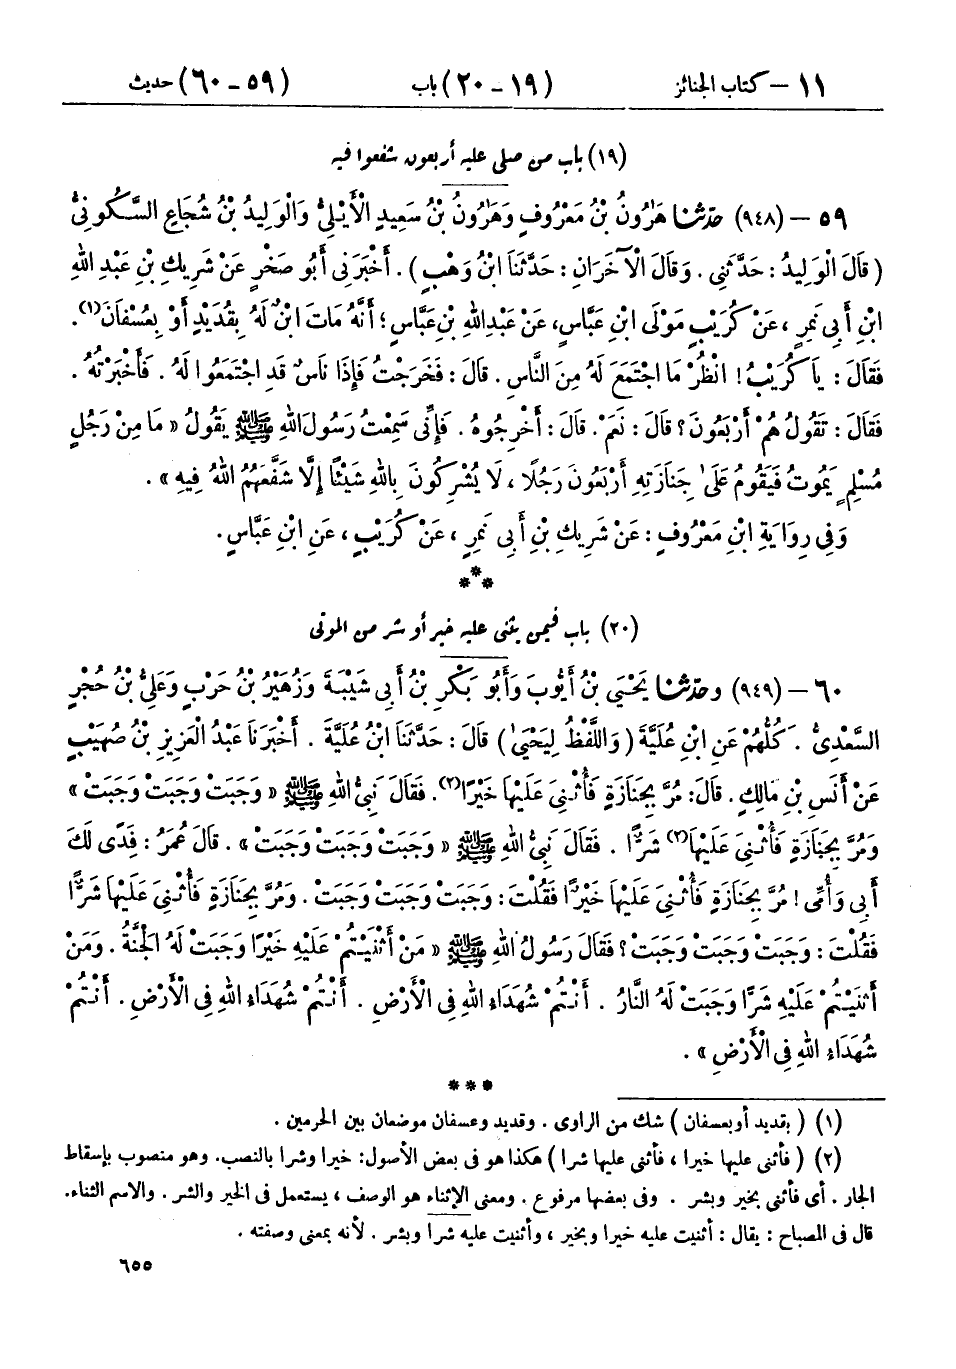 ١١ – كتاب الجنائز (١٩ - ٢٠) باب (٥٩ - ٦٠) حديث
(١٩) باب من صلى عليه أربعون شفعوا فيه
٥٩ – (٩٤٨) حدّثنا هَرُونُ بْنُ مَعْرُوفٍ وَهَرُونُ بْنُ سَعِيدٍ الْأَيْلِيُّ وَالْوَلِيدُ بْنُ شُجَاعٍ السَّكُونِيُّ
( قَالَ الْوَلِيدُ : حَدَّثَنِي . وَقَالَ الْآخَرَانِ : حَدَّثَنَا ابْنُ وَهْبٍ ) . أَخْبَرَنِي أَبُو صَخْرٍ عَنْ شَرِيكِ بْنِ عَبْدِ اللهِ
ابْنِ أَبِي نَمِرٍ ، عَنْ كُرَيْبٍ مَوْلَى ابْنِ عَبَّاسٍ، عَنْ عَبْدِ اللهِ بْنِ عَبَّاسٍ؛ أَنَّهُ مَاتَ ابْنٌ لَهُ بِقُدَيْدٍ أَوْ بِعُسْفَانَ(١).
فَقَالَ : يَا كُرَيْبُ ! انْظُرْ مَا اجْتَمَعَ لَهُ مِنَ النَّاسِ . قَالَ : فَخَرَجْتُ فَإِذَا نَاسٌ قَدِ اجْتَمَعُوا لَهُ . فَأَخْبَرْتُهُ .
فَقَالَ : تَقُولُ هُمْ أَرْبَعُونَ ؟ قَالَ : نَعَمْ . قَالَ : أَخْرِجُوهُ . فَإِنِّي سَمِعْتُ رَسُولَ اللهِ ﷺ يَقُولُ « مَا مِنْ رَجُلٍ
مُسْلِمٍ يَمُوتُ فَيَقُومُ عَلَى جَنَازَتِهِ أَرْبَعُونَ رَجُلًا ، لَا يُشْرِكُونَ بِاللهِ شَيْئًا إِلَّا شَفَّعَهُمُ اللهُ فِيهِ » .
وَفِي رِوَايَةِ ابْنِ مَعْرُوفٍ : عَنْ شَرِيكِ بْنِ أَبِي نَمِرٍ ، عَنْ كُرَيْبٍ ، عَنِ ابْنِ عَبَّاسٍ .
***
(٢٠) باب فيمن يثنى عليه خير أو شر من الموتى
٦٠ – (٩٤٩) وحدّثنا يَحْيَى بْنُ أَيُّوبَ وَأَبُو بَكْرِ بْنُ أَبِي شَيْبَةَ وَزُهَيْرُ بْنُ حَرْبٍ وَعَلِيُّ بْنُ حُجْرٍ
السَّعْدِيُّ . كُلُّهُمْ عَنِ ابْنِ عُلَيَّةَ ( وَاللَّفْظُ لِيَحْيَى ) قَالَ : حَدَّثَنَا ابْنُ عُلَيَّةَ . أَخْبَرَنَا عَبْدُ الْعَزِيزِ بْنُ صُهَيْبٍ
عَنْ أَنَسِ بْنِ مَالِكٍ . قَالَ: مُرَّ بِجَنَازَةٍ فَأُثْنِيَ عَلَيْهَا خَيْرًا(٢). فَقَالَ نَبِيُّ اللهِ ﷺ « وَجَبَتْ وَجَبَتْ وَجَبَتْ »
وَمُرَّ بِجَنَازَةٍ فَأُثْنِيَ عَلَيْهَا(٢) شَرًّا . فَقَالَ نَبِيُّ اللهِ ﷺ « وَجَبَتْ وَجَبَتْ وَجَبَتْ » . قَالَ عُمَرُ : فِدًى لَكَ
أَبِي وَأُمِّي ! مُرَّ بِجَنَازَةٍ فَأُثْنِيَ عَلَيْهَا خَيْرًا فَقُلْتَ : وَجَبَتْ وَجَبَتْ وَجَبَتْ . وَمُرَّ بِجَنَازَةٍ فَأُثْنِيَ عَلَيْهَا شَرًّا
فَقُلْتَ : وَجَبَتْ وَجَبَتْ وَجَبَتْ ؟ فَقَالَ رَسُولُ اللهِ ﷺ « مَنْ أَثْنَيْتُمْ عَلَيْهِ خَيْرًا وَجَبَتْ لَهُ الْجَنَّةُ . وَمَنْ
أَثْنَيْتُمْ عَلَيْهِ شَرًّا وَجَبَتْ لَهُ النَّارُ . أَنْتُمْ شُهَدَاءُ اللهِ فِي الْأَرْضِ . أَنْتُمْ شُهَدَاءُ اللهِ فِي الْأَرْضِ . أَنْتُمْ
شُهَدَاءُ اللهِ فِي الْأَرْضِ » .
***
(١) ( بقديد أو بعسفان ) شك من الراوى . وقديد وعسفان موضعان بين الحرمين .
(٢) ( فأثنى عليها خيرا ، فأثنى عليها شرا ) هكذا هو فى بعض الأصول: خيرا وشرا بالنصب. وهو منصوب بإسقاط
الجار . أى فأثنى بخير وبشر . وفى بعضها مرفوع . ومعنى الإثناء هو الوصف ، يستعمل فى الخير والشر . والاسم الثناء.
قال فى المصباح : يقال : أثنيت عليه خيرا وبخير ، وأثنيت عليه شرا وبشر . لأنه بمعنى وصفته .
٦٥٥